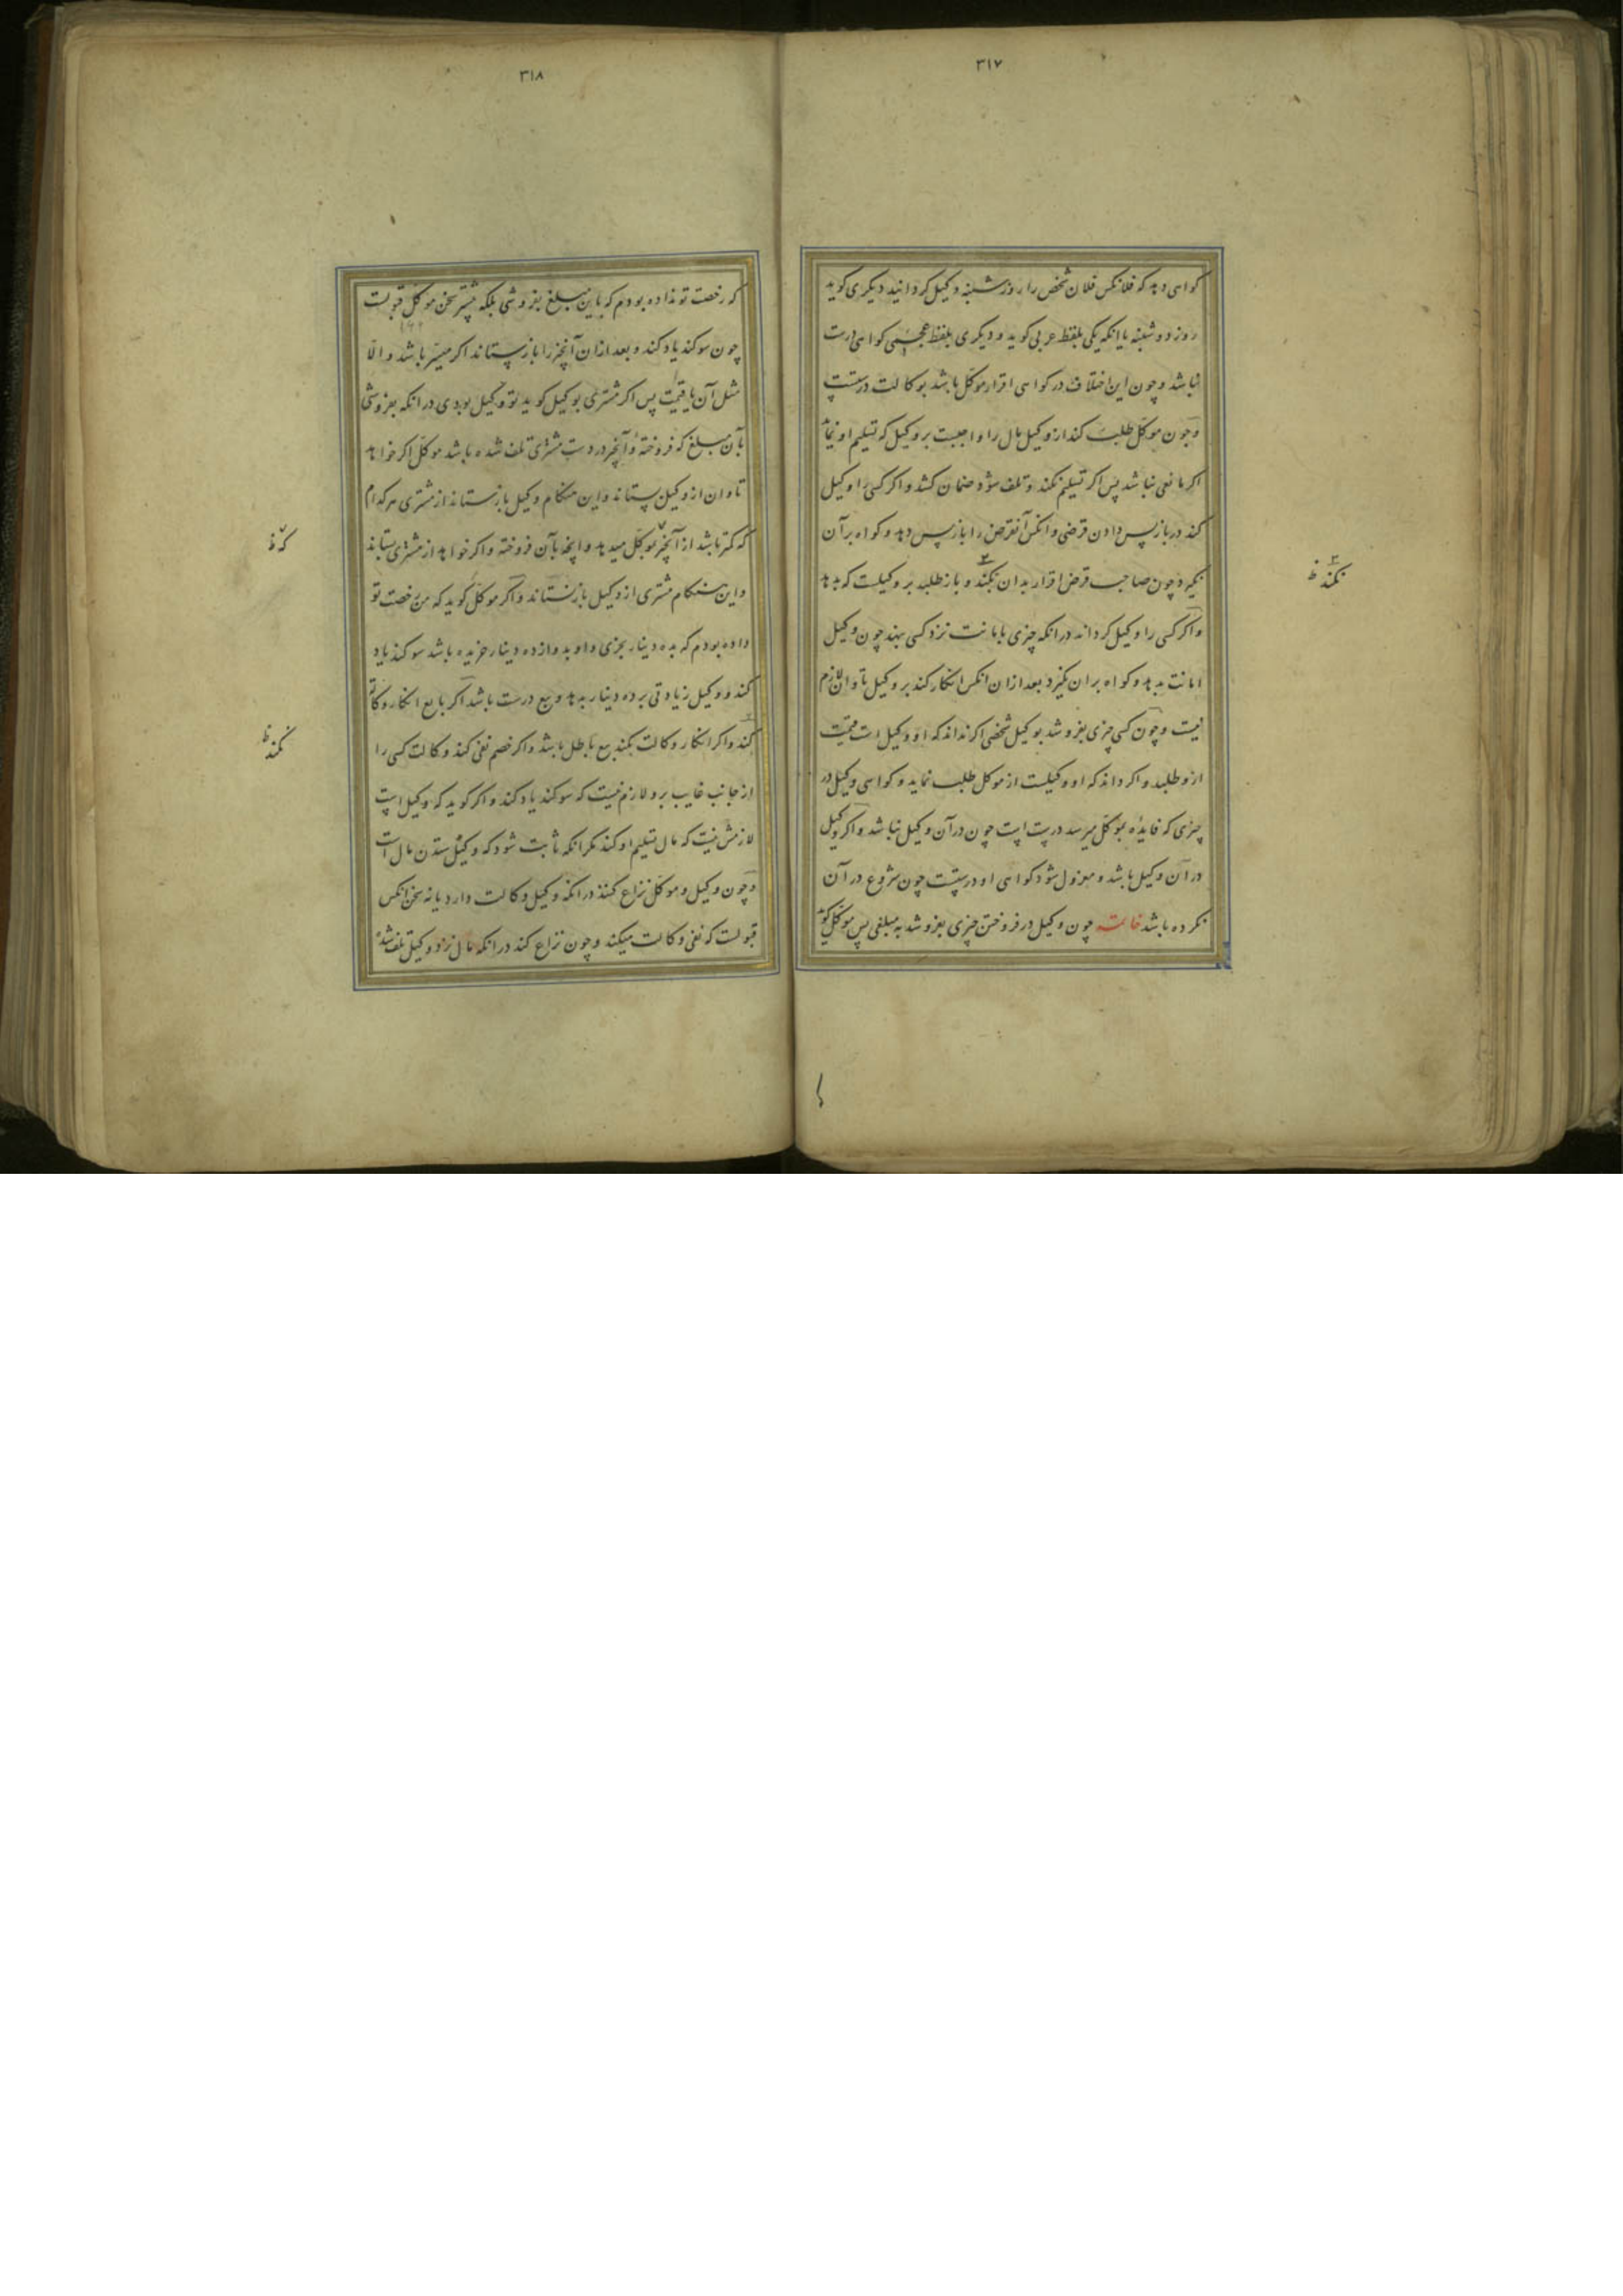 ٣١٧
کواهی دهد که فلانکس فلان شخص را روز شنبه وکیل کردانید دیکری کوید
روز دوشنبه یا انکه یکی بلفظ عربی کوید و دیکری بلفظ عجمی کواهی درست
نباشد و چون این اختلاف در کواهی اقرار موکل باشد بوکالت درستست
و چون موکّل طلب کند از وکیل مال را واجبست بر وکیل که تسلیم او نماید
اکر مانعی نباشد پس اکر تسلیم نکند و تلف شود ضمان کشد و اکر کسی را وکیل
کند در باز پس دادن قرضی و انکس آنقرض را باز پس دهد و کواه بر آن
نکیرد چون صاحب قرض اقرار بدان نکند و باز طلبد بر وکیلست که بدهد
و اکر کسی را وکیل کرداند در انکه چیزی بامانت نزد کسی بنهد چون وکیل
امانت بدهد و کواه بران نکیرد بعد ازان انکس انکار کند بر وکیل تاوان لازم
نیست و چون کسی چیزی بفروشد بوکیل شخصی اکر نداند که او وکیل است قیمت
ازو طلبد و اکر داند که او وکیلست از موکل طلب نماید و کواهی وکیل در
چیزی که فایدۀ بموکّل میرسد درست است چون در آن وکیل نباشد و اکر وکیل
در آن وکیل باشد و معزول شود کواهی او درستست چون شروع در آن
نکرده باشد خاتمه چون وکیل در فروختن چیزی بفروشد به مبلغی پس موکّل کوید
نکند ظ
٣١٨
که رخصت تو نداده بودم که باین مبلغ بفروشی بلکه بیشتر سخن موکّل قبولست
چون سوکند یاد کند و بعد ازان آنچیز را باز ستاند اکر میسّر باشد و الّا
مثل آن یا قیمت پس اکر مشتری بوکیل کوید تو وکیل بودی در انکه بفروشی
بآن مبلغ که فروختۀ و آنچیز در دست مشتری تلف شده باشد موکّل اکر خواهد
تاوان از وکیل بستاند و این هنکام وکیل باز ستاند از مشتری هر کدام
که کمتر باشد از آنچیز بموکّل میدهد و انچه بآن فروخته و اکر خواهد از مشتری بستاند
و این هنکام مشتری از وکیل باز نستاند و اکر موکّل کوید که من رخصت تو
داده بودم که بده دینار بخری و او بدوازده دینار خریده باشد سوکند یاد
کند و وکیل زیادتی بر ده دینار بدهد و بیع درست باشد اکر بایع انکار وکالت
کند و اکر انکار وکالت نکند بیع باطل باشد و اکر خصم نفی کند وکالت کسی را
از جانب غایب برو لازم نیست که سوکند یاد کند و اکر کوید که وکیل است
لازمش نیست که مال تسلیم او کند مکر انکه ثابت شود که وکیل ستدن مال است
و چون وکیل و موکّل نزاع کنند در انکه وکیل وکالت دارد یا نه سخن انکس
قبولست که نفی وکالت میکند و چون نزاع کند در انکه مال نزد وکیل تلف شده
که ظ
نکند ظ